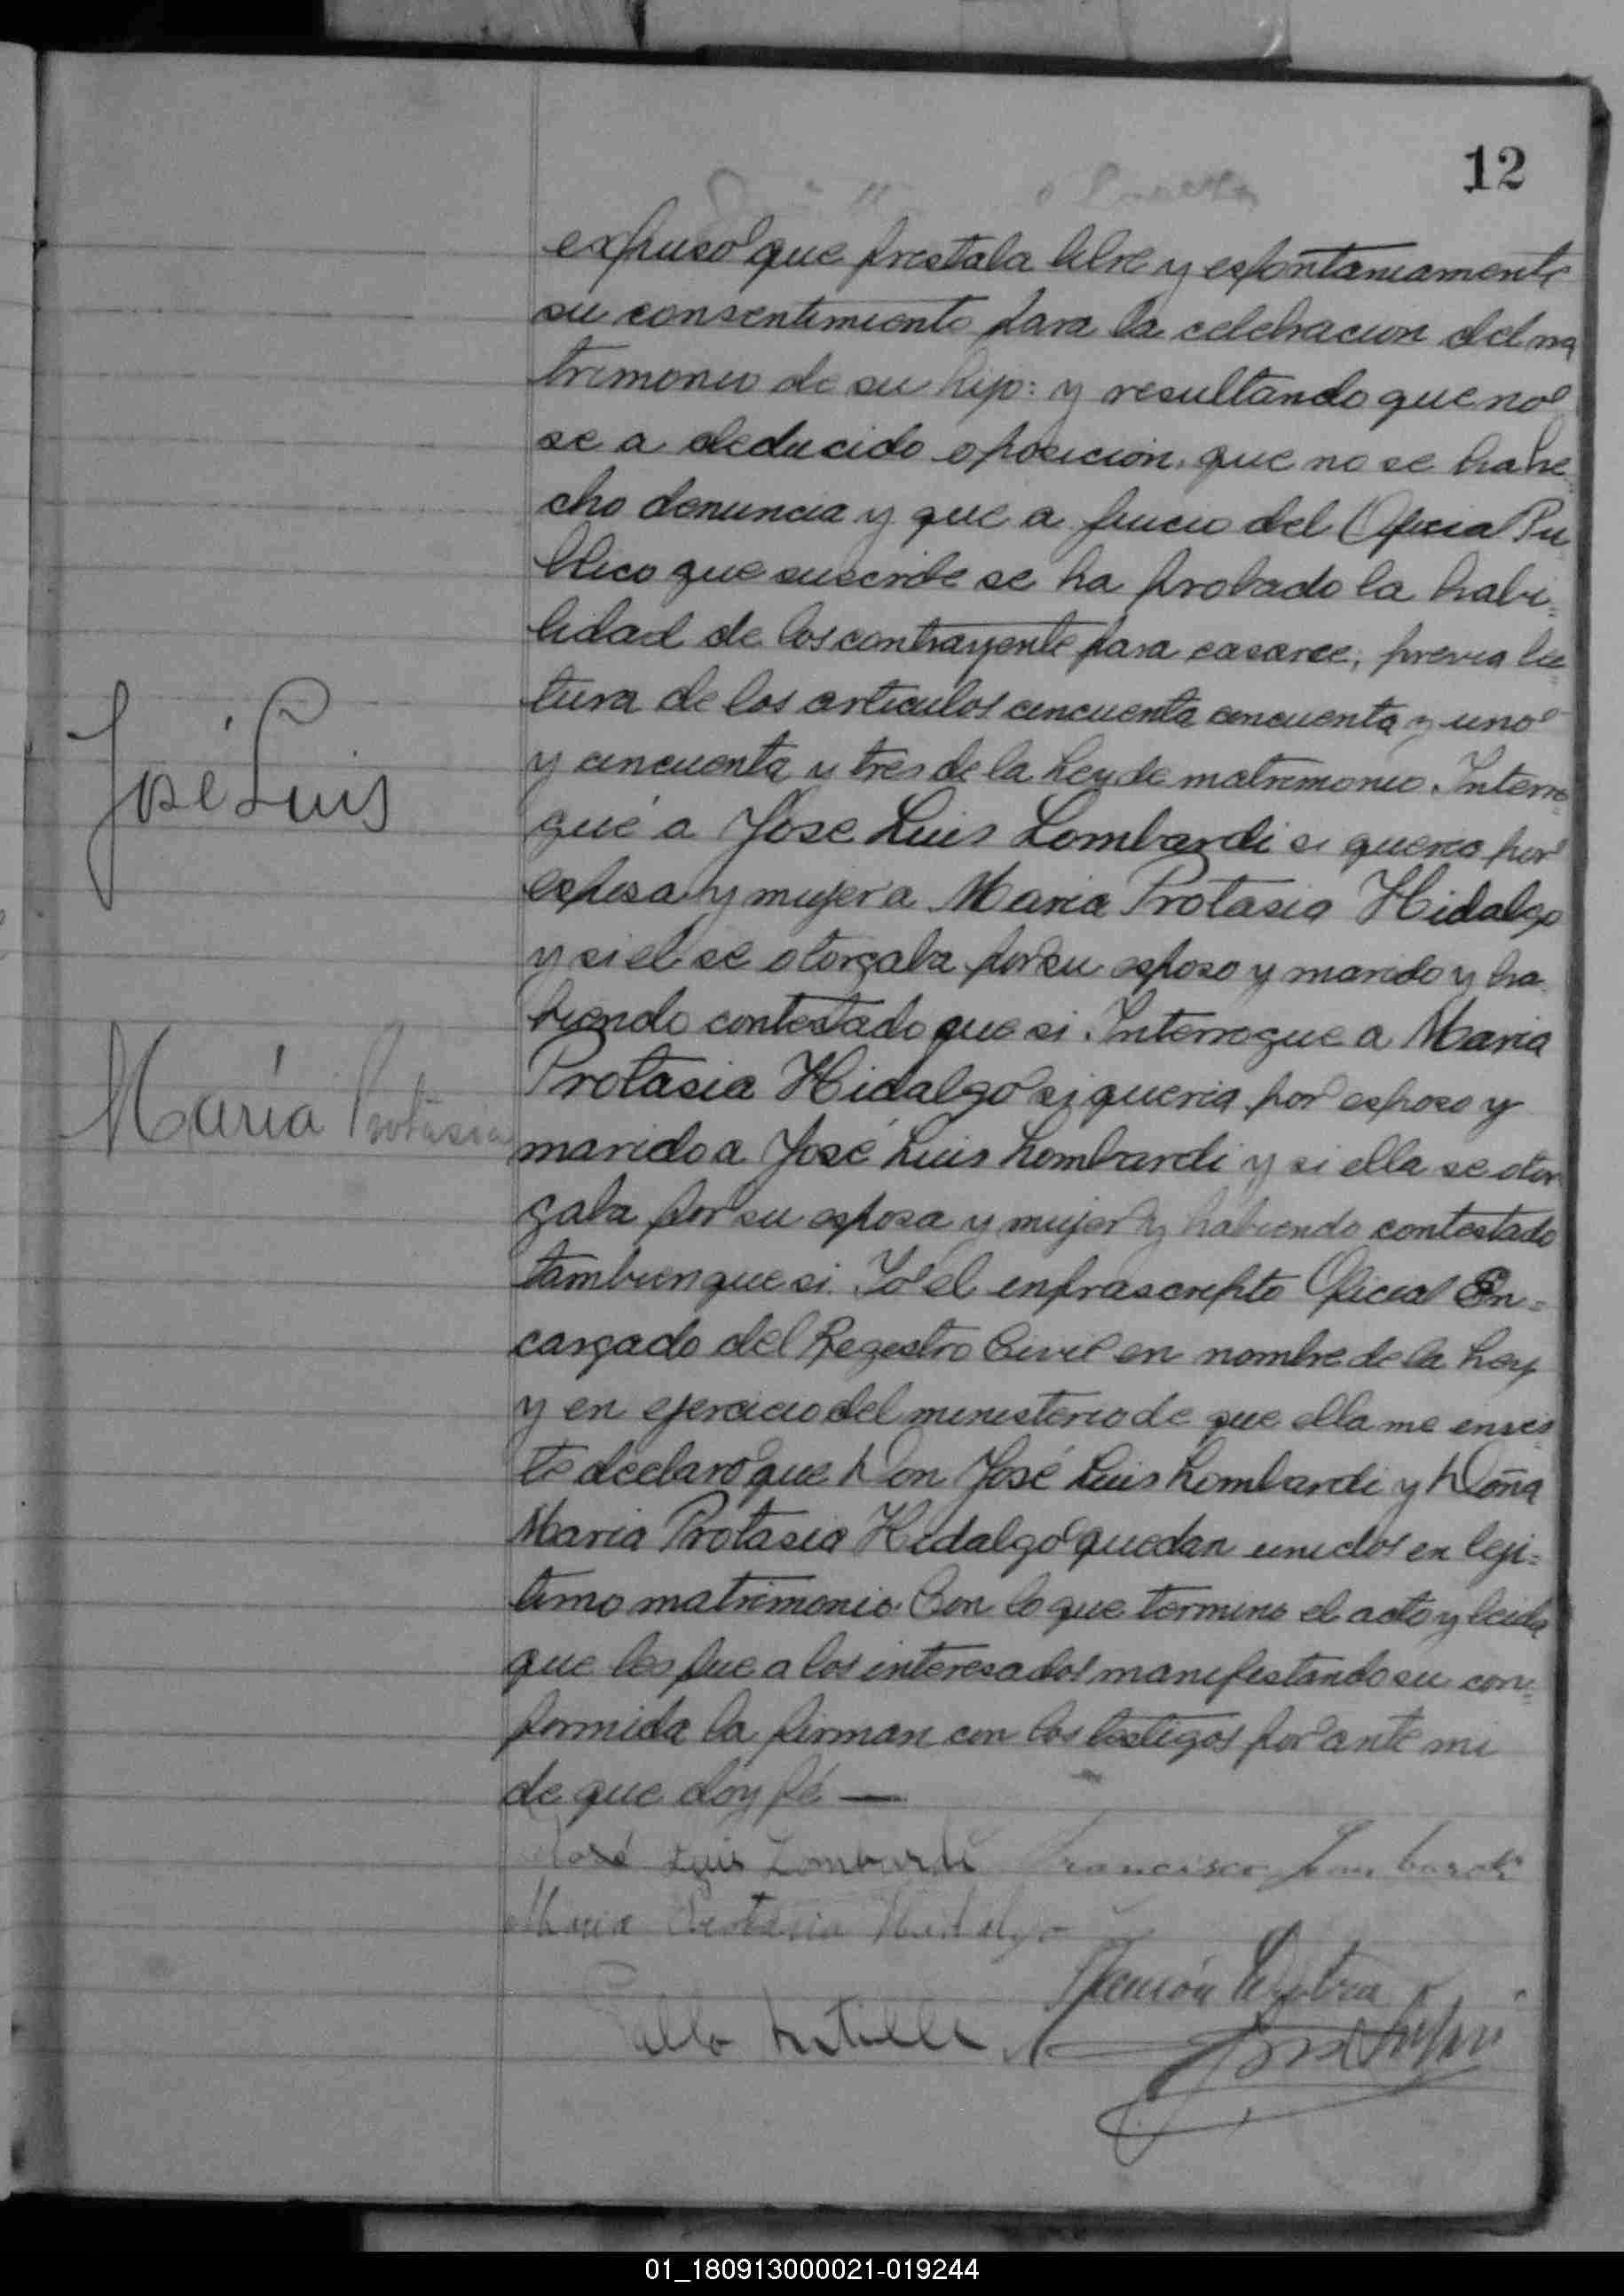 12
expuso que prestaba libre y espontaneamente
su consentimiento para la celebracion del ma
trimonio de su hijo: y resultando que no
se a deducido oposicion, que no se ha he=
cho denuncia y que a juicio del Oficia Pu
blico que suscribe se ha probado la habi=
lidad de los contrayente para casarce; previa lec=
tura de los articulos cincuenta cincuenta y uno
y cincuenta y tres de la Ley de matrimonio. Interro=
gué a Jose Luis Lombardi si queria por
esposa y mujer a Maria Protasia Hidalgo
y si el se otorgaba por su esposo y marido y ha
biendo contestado que si. Interrogue a Maria
Protasia Hidalgo si queria por esposo y
marido a José Luis Lombardi y si ella se otor
gaba por su esposa y mujer y habiendo contestado
tambien que si. Yo el infrascripto Oficial En=
cargado del Registro Civil en nombre de la Ley
y en ejercicio del ministerio de que ella me envis
te declaro que Don José Luis Lombardi y Doña
Maria Protasia Hidalgo quedan unidos en leji=
timo matrimonio. Con lo que termino el acto y leida
que les fue a los interesados manifestando su con=
formida la firman con los testigos por ante mi
de que doy fé —
José Luis
María Protasia
José Luis Lombardi Francisco Lombardi
Maria Protasia Hidalgo
Ramón
01_180913000021-019244